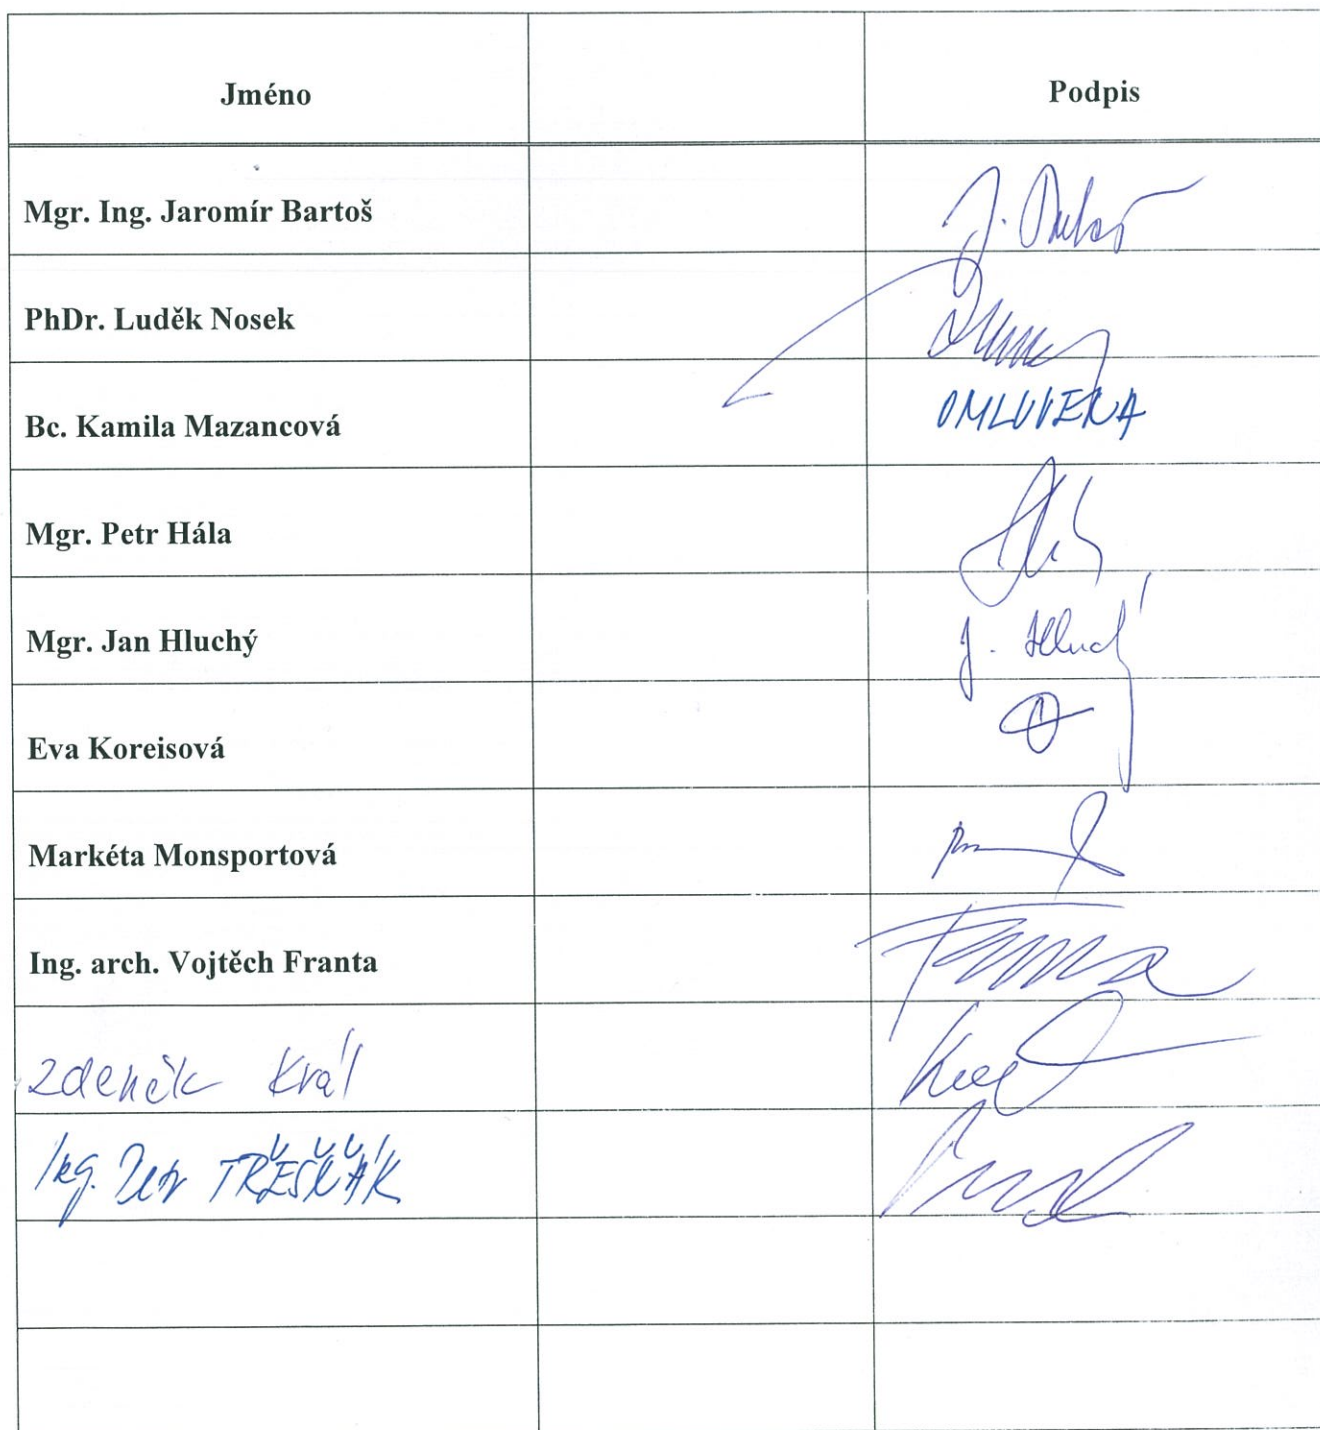 Jméno Podpis
Mgr. Ing. Jaromír Bartoš J.
PhDr. Luděk Nosek
Bc. Kamila Mazancová OMLUVENA
Mgr. Petr Hála
Mgr. Jan Hluchý J.
Eva Koreisová
Markéta Monsportová
Ing. arch. Vojtěch Franta
Zdeněk Král
Ing. Petr TŘEŠŇÁK